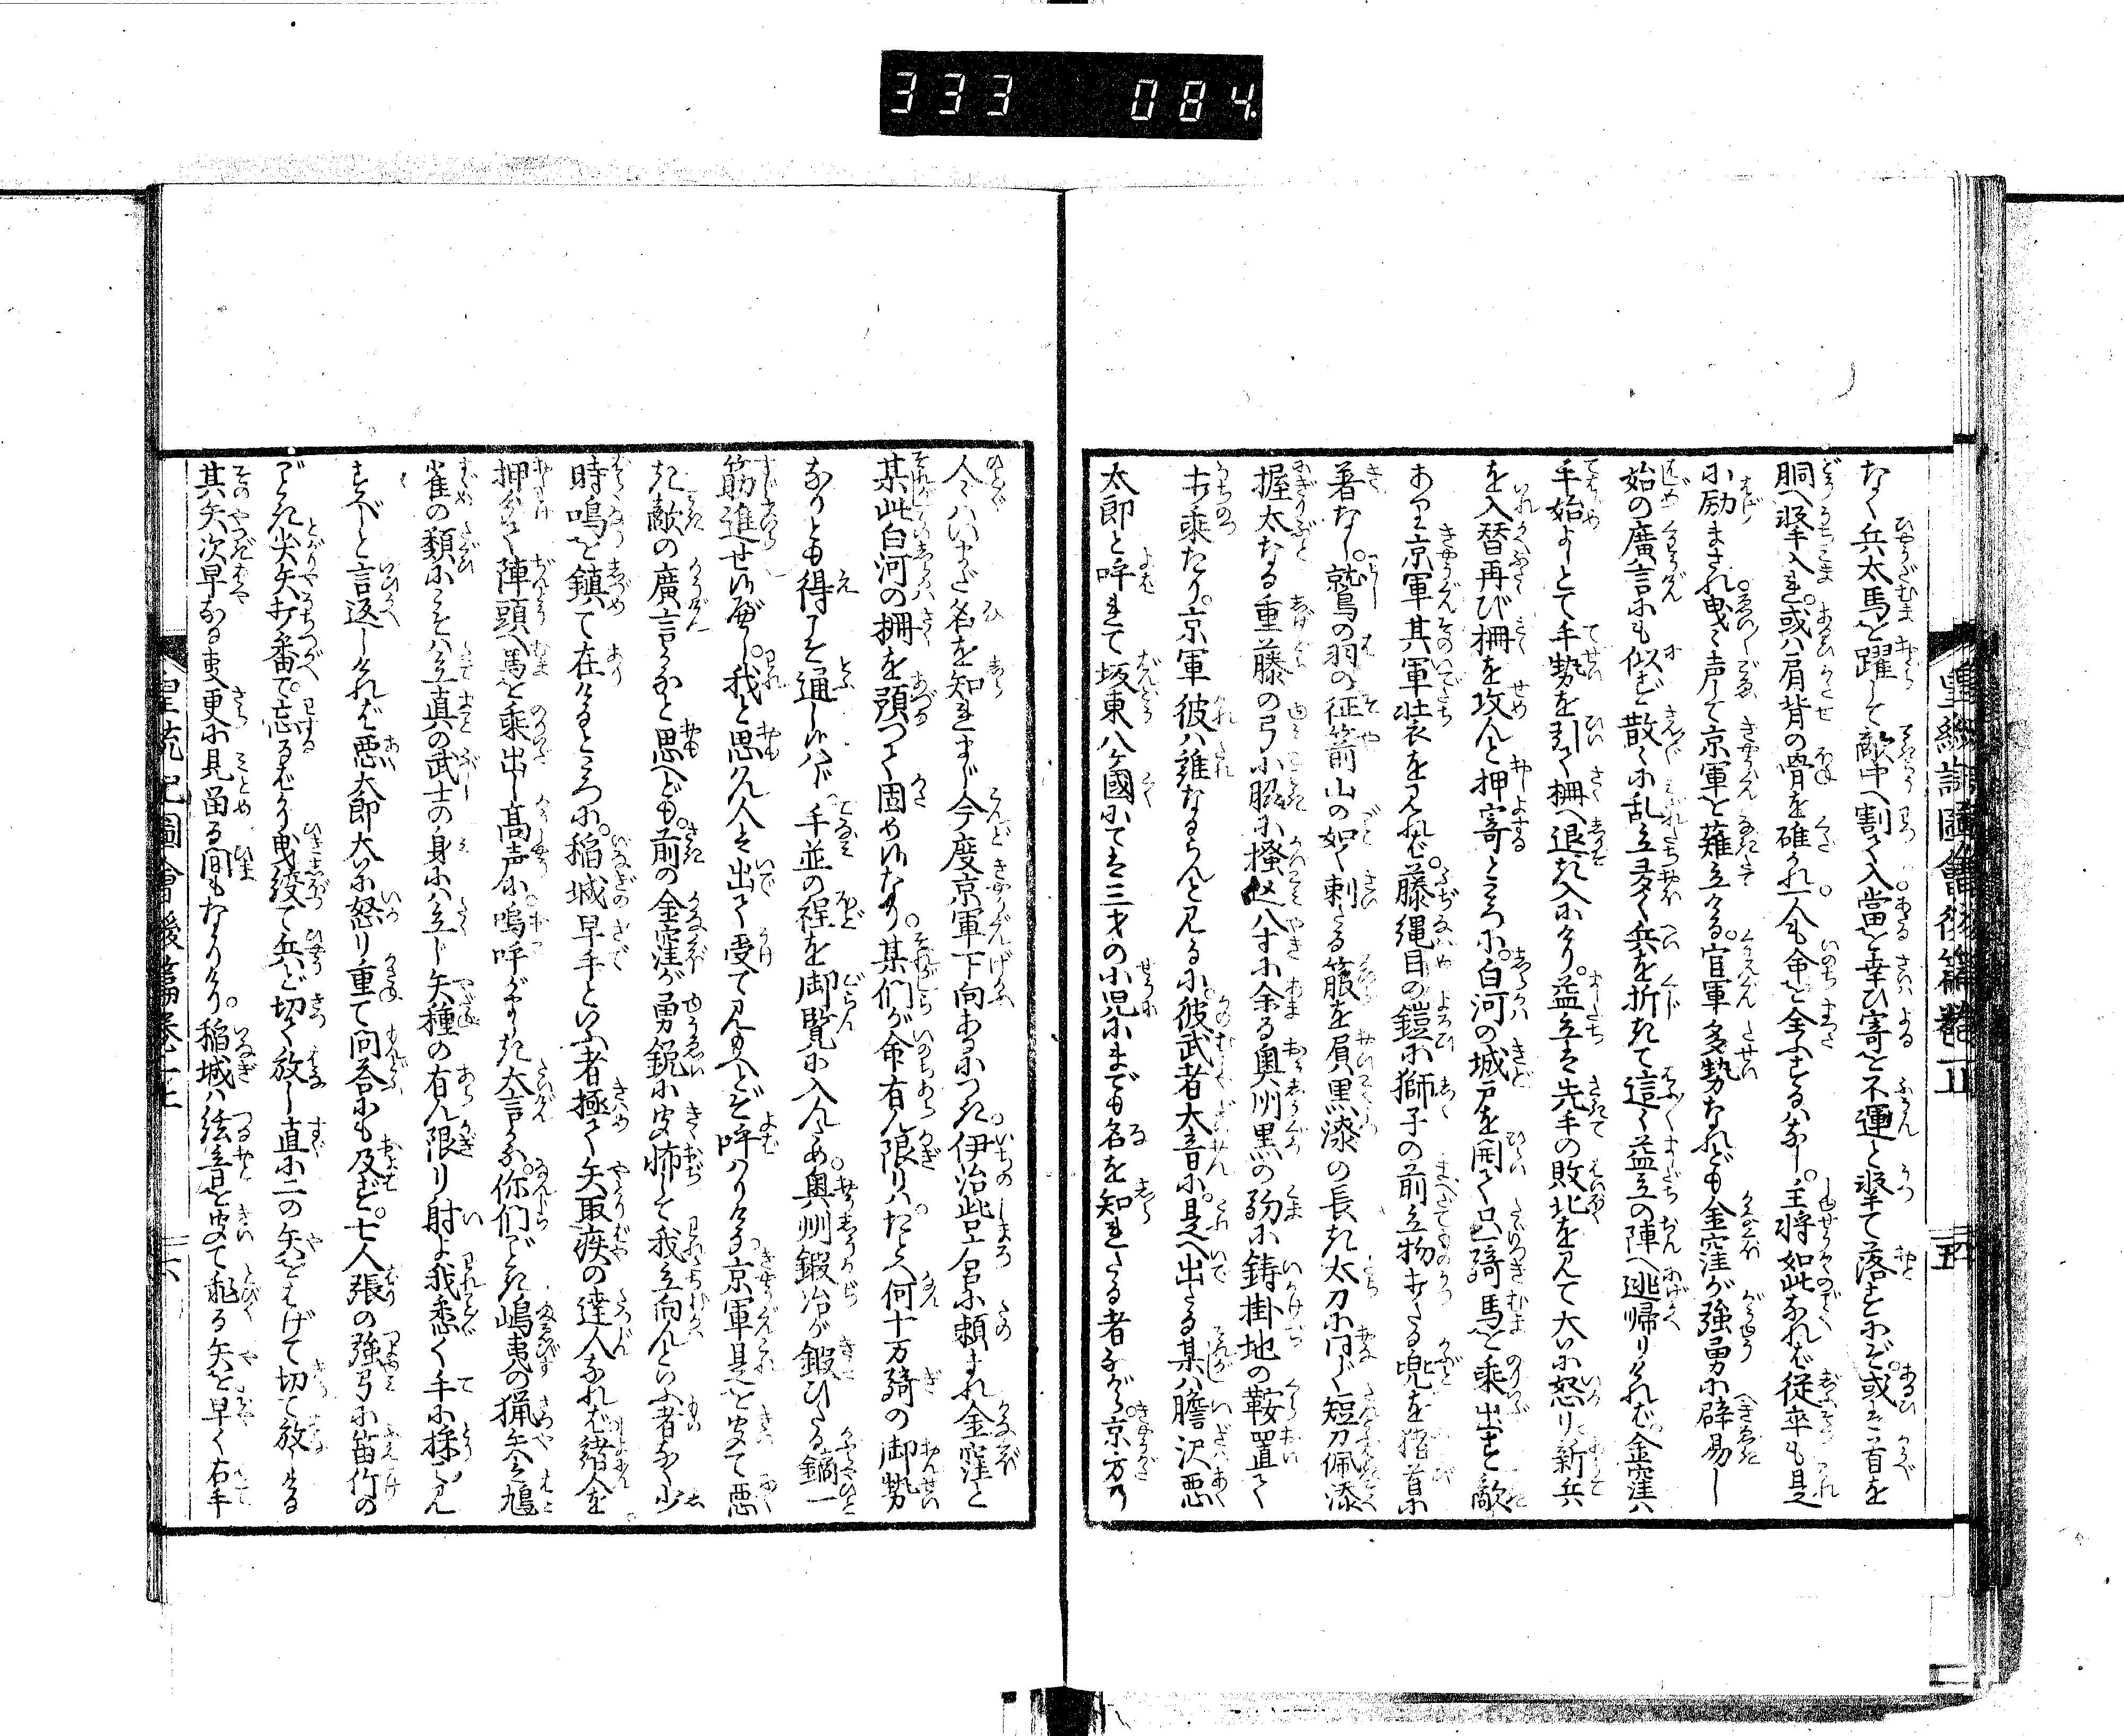 333 084.
皇統記圖會後篇卷二上
なく兵太馬を躍して敵中へ割て入當を幸ひ寄を不運と撃て落すにぞ。或は首を
胴へ撃入れ。或ハ肩背の骨を碓れ一人も命を全ふするハなし。主將如此なれば従卒も是
に励まされ曳々声して京軍を薙立ける。官軍多勢なれども金窪が強勇に辟易し
始の廣言にも似ず散々に乱立多く兵を折れて這々益立の陣へ逃帰りければ。金窪ハ
手始よしとて手勢を引て柵へ退き入にけり。益立は先手の敗北を見て大いに怒り新兵
を入替再び柵を攻んと押寄ところに。白河の城戸を開て只一騎馬を乗出す敵
あり京軍其軍装を見れば。藤縄目の鎧に獅子の前立物打たる兜を猪首に
著なし。鷲の羽の征箭山の如く刺たる箙を負黒漆の長き太刀に同じく短刀佩添
握太なる重藤の弓小脇に搔込八寸に余る奥州黒の駒に鋳掛地の鞍置て
打乗たり。京軍彼ハ誰なるらんと見るに。彼武者大音に。是へ出たる某ハ膽沢悪
太郎と呼れて坂東八ヶ國にては三才の小児にまでも名を知れたる者ながら。京方の
人々ハいまだ名を知れまじ今度京軍下向あるにつき。伊治呰呂に頼まれ金窪と
某此白河の柵を預つて固め候なり。某們が命有ん限りハ。たとへ何十万騎の御勢
なりとも得こそ通し候ハじ。手並の程を御覧に入ん為。奥州鍛冶が鍛ひたる鏑一
筋進せ候べし。我と思ハん人は出て受て見給へとぞ呼ハりける。京軍是を聞て悪
き敵の廣言かなと思へども。前の金窪が勇鋭に聞怖して我立向んといふ者なく少
時鳴を鎮て在けるところに。稲城早手といふ者極て矢取疾の達人なれば諸人を
押分て陣頭へ馬を乗出し高声に。嗚呼がましき大言かな。你們ごとき嶋夷の猟矢ハ鳩
雀の類にこそハ立真の武士の身にハ立じ矢種の有ん限り射よ我悉く手に採て見
すべしと言返しければ悪太郎大いに怒り重て問答にも及ばず。七人張の強弓に笛竹の
ごとき尖矢打番て。忘るばかり曳絞て兵ど切て放し直に二の矢をはげて切て放ける
其矢次早なる事更に見留る間もなかりけり。稲城ハ弦音を聞て飛る矢を早く右手
皇統記圖會後篇卷二上
五
六